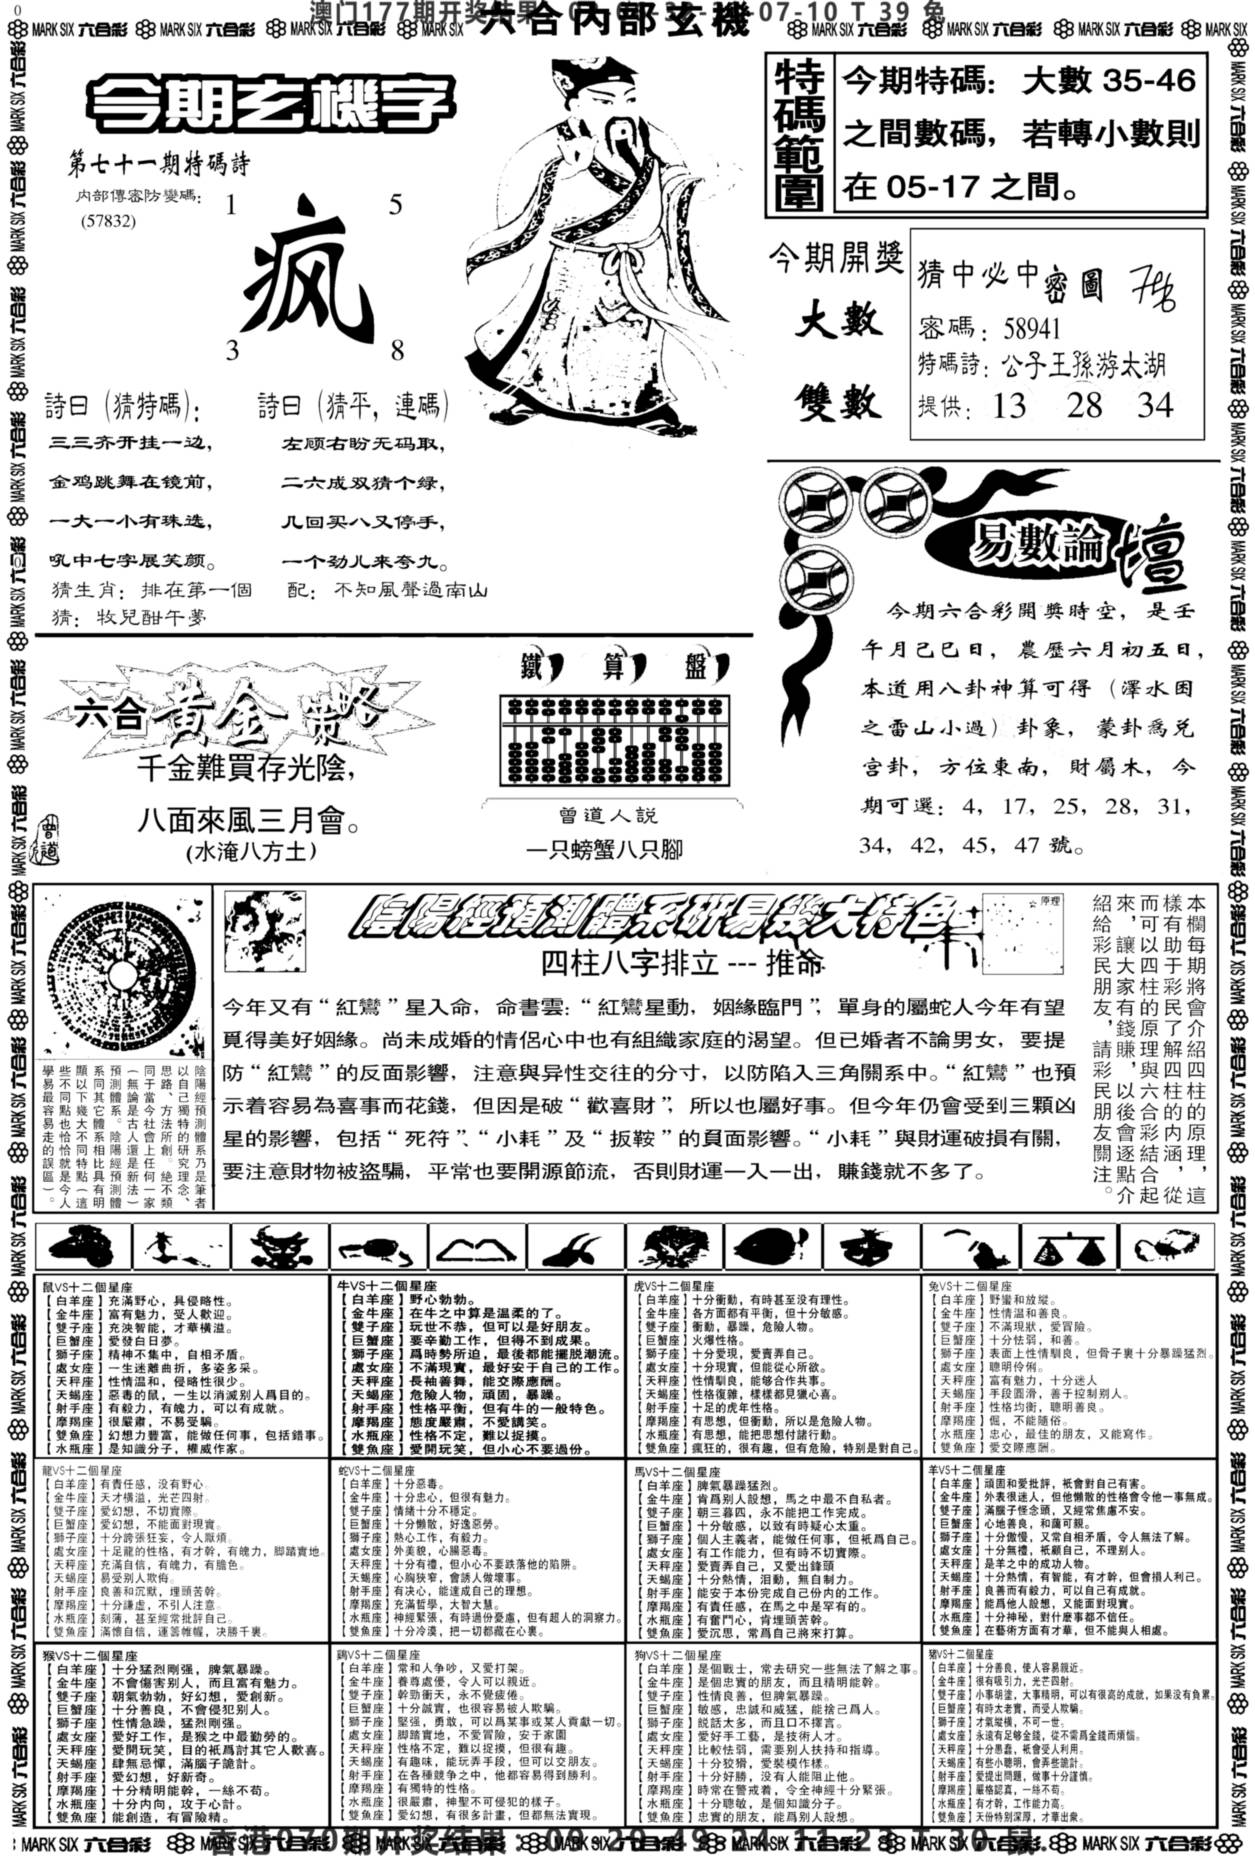 六合內部玄機
今期玄機字
第七十一期特碼詩
内部傳密防變碼:
(57832)
1 5
疯
3 8
詩曰（猜特碼）:
三三齐开挂一边,
金鸡跳舞在镜前,
一大一小有珠选,
吼中七字展笑颜。
詩曰（猜平, 連碼）
左顾右盼无码取,
二六成双猜个绿,
几回买八又停手,
一个劲儿来夸九。
猜生肖: 排在第一個 配: 不知風聲過南山
猜: 牧兒酣午夢
特碼範圍
今期特碼: 大數 35-46
之間數碼, 若轉小數則
在 05-17 之間。
今期開獎
大數
雙數
猜中必中密圖
密碼: 58941
特碼詩: 公子王孫游太湖
提供: 13 28 34
易數論壇
今期六合彩開獎時空, 是壬
午月己巳日, 農歷六月初五日,
本道用八卦神算可得（澤水困
之雷山小過）卦象, 蒙卦爲兑
宫卦, 方位東南, 財屬木, 今
期可選: 4, 17, 25, 28, 31,
34, 42, 45, 47 號。
六合黄金策略
千金難買存光陰,
八面來風三月會。
(水淹八方土)
曾道
鐵算盤
曾道人説
一只螃蟹八只腳
陰陽經預測體系研易幾大特色
四柱八字排立 --- 推命
☆原理
今年又有“紅鸞”星入命, 命書雲: “紅鸞星動, 姻緣臨門”, 單身的屬蛇人今年有望
覓得美好姻緣。尚未成婚的情侶心中也有組織家庭的渴望。但已婚者不論男女, 要提
防“紅鸞”的反面影響, 注意與異性交往的分寸, 以防陷入三角關系中。“紅鸞”也預
示着容易為喜事而花錢, 但因是破“歡喜財”, 所以也屬好事。但今年仍會受到三顆凶
星的影響, 包括“死符”、“小耗”及“扳鞍”的負面影響。“小耗”與財運破損有關,
要注意財物被盗騙, 平常也要開源節流, 否則財運一入一出, 賺錢就不多了。
本欄每期將會介紹四柱的原理, 這
樣有助于彩民了解四柱的内涵, 從
而可以四柱的原理與六合彩結合起
來, 讓大家有錢賺, 以後會逐點介
紹給彩民朋友, 請彩民朋友關注。
陰陽經預測體系乃是筆者
以自己獨特的研究理念、
思路、方法所創。絶不類
同于當今社會上任何一家
(無論是古人還是新法)
預測體系。陰陽經預測體
系同其它體系相比具有明
顯以下幾大不同特點(這
些不同點也恰恰就是今人
學易最容易走的誤區)。
鼠VS十二個星座
【白羊座】充滿野心, 具侵略性。
【金牛座】富有魅力, 受人歡迎。
【雙子座】充決智能, 才華橫溢。
【巨蟹座】愛發白日夢。
【獅子座】精神不集中, 自相矛盾。
【處女座】一生迷離曲折, 多姿多采。
【天秤座】性情温和, 侵略性很少。
【天蝎座】惡毒的鼠, 一生以消滅别人爲目的。
【射手座】有毅力, 有魄力, 可以有成就。
【摩羯座】很嚴肅, 不易受騙。
【雙魚座】幻想力豐富, 能做任何事, 包括錯事。
【水瓶座】是知識分子, 權威作家。
牛VS十二個星座
【白羊座】野心勃勃。
【金牛座】在牛之中算是温柔的了。
【雙子座】玩世不恭, 但可以是好朋友。
【巨蟹座】要辛勤工作, 但得不到成果。
【獅子座】爲時勢所迫, 最後都能擺脱潮流。
【處女座】不滿現實, 最好安于自己的工作。
【天秤座】長袖善舞, 能交際應酬。
【天蝎座】危險人物, 頑固, 暴躁。
【射手座】性格平衡, 但有牛的一般特色。
【摩羯座】態度嚴肅, 不愛講笑。
【水瓶座】性格不定, 難以捉摸。
【雙魚座】愛開玩笑, 但小心不要過份。
虎VS十二個星座
【白羊座】十分衝動, 有時甚至没有理性。
【金牛座】各方面都有平衡, 但十分敏感。
【雙子座】衝動, 暴躁, 危險人物。
【巨蟹座】火爆性格。
【獅子座】十分愛現, 愛賣弄自己。
【處女座】十分現實, 但能從心所欲。
【天秤座】性情馴良, 能够合作共事。
【天蝎座】性格復雜, 樣樣都見獵心喜。
【射手座】十足的虎年性格。
【摩羯座】有思想, 但衝動, 所以是危險人物。
【水瓶座】有思想, 能把思想付諸行動。
【雙魚座】瘋狂的, 很有趣, 但有危險, 特别是對自己。
兔VS十二個星座
【白羊座】野蠻和放縱。
【金牛座】性情温和善良。
【雙子座】不滿現狀, 愛冒險。
【巨蟹座】十分怯弱, 和善。
【獅子座】表面上性情馴良, 但骨子裏十分暴躁猛烈。
【處女座】聰明伶俐。
【天秤座】富有魅力, 十分迷人
【天蝎座】手段圓滑, 善于控制别人。
【射手座】性格均衡, 聰明善良。
【摩羯座】倔, 不能隨俗。
【水瓶座】忠心, 最佳的朋友, 又能寫作。
【雙魚座】愛交際應酬。
龍VS十二個星座
【白羊座】有責任感, 没有野心。
【金牛座】天才橫溢, 光芒四射。
【雙子座】愛幻想, 不切實際。
【巨蟹座】愛幻想, 不能面對現實。
【獅子座】十分誇張狂妄, 令人厭煩。
【處女座】十足龍的性格, 有才幹, 有魄力, 脚踏實地。
【天秤座】充滿自信, 有魄力, 有膽色。
【天蝎座】易受别人欺侮。
【射手座】良善和沉默, 埋頭苦幹。
【摩羯座】十分謙虚, 不引人注意。
【水瓶座】刻薄, 甚至經常批評自己。
【雙魚座】滿懷自信, 運籌帷幄, 决勝千裏。
蛇VS十二個星座
【白羊座】十分惡毒。
【金牛座】十分忠心, 但很有魅力。
【雙子座】情緒十分不穩定。
【巨蟹座】十分懒散, 好逸惡勞。
【獅子座】熱心工作, 有毅力。
【處女座】外美貌, 心腸惡毒。
【天秤座】十分有禮, 但小心不要跌落他的陷阱。
【天蝎座】心胸狹窄, 會誘人做壞事。
【射手座】有决心, 能達成自己的理想。
【摩羯座】充滿哲學, 大智大慧。
【水瓶座】神經緊張, 有時過份憂慮, 但有超人的洞察力。
【雙魚座】十分冷漠, 把一切都藏在心裏。
馬VS十二個星座
【白羊座】脾氣暴躁猛烈。
【金牛座】肯爲别人設想, 馬之中最不自私者。
【雙子座】朝三暮四, 永不能把工作完成。
【巨蟹座】十分敏感, 以致有時疑心太重。
【獅子座】個人主義者, 能做任何事, 但衹爲自己。
【處女座】有工作能力, 但有時不切實際。
【天秤座】愛賣弄自己, 又愛出鋒頭
【天蝎座】十分熱情, 泪動, 無自制力。
【射手座】能安于本份完成自己份内的工作。
【摩羯座】有責任感, 在馬之中是罕有的。
【水瓶座】有奮鬥心, 肯埋頭苦幹。
【雙魚座】愛沉思, 常爲自己將來打算。
羊VS十二個星座
【白羊座】頑固和愛批評, 衹會對自己有害。
【金牛座】外表很迷人, 但他懶散的性格會令他一事無成。
【雙子座】滿腦子怪念頭, 又經常焦慮不安。
【巨蟹座】心地善良, 和藹可親。
【獅子座】十分傲慢, 又常自相矛盾, 令人無法了解。
【處女座】十分無禮, 衹顧自己, 不理别人。
【天秤座】是羊之中的成功人物。
【天蝎座】十分熱情, 有智能, 有才幹, 但會損人利己。
【射手座】良善而有毅力, 可以自己有成就。
【摩羯座】能爲他人設想, 又能面對現實。
【水瓶座】十分神秘, 對什麼事都不信任。
【雙魚座】在藝術方面有才華, 但不能與人相處。
猴VS十二個星座
【白羊座】十分猛烈剛强, 脾氣暴躁。
【金牛座】不會傷害别人, 而且富有魅力。
【雙子座】朝氣勃勃, 好幻想, 愛創新。
【巨蟹座】十分善良, 不會侵犯别人。
【獅子座】性情急躁, 猛烈剛强。
【處女座】愛好工作, 是猴之中最勤勞的。
【天秤座】愛開玩笑, 目的衹爲討其它人歡喜。
【天蝎座】肆無忌憚, 滿腦子詭計。
【射手座】愛幻想, 好新奇。
【摩羯座】十分精明能幹, 一絲不苟。
【水瓶座】十分内向, 攻于心計。
【雙魚座】能創造, 有冒險精。
鷄VS十二個星座
【白羊座】常和人争吵, 又愛打架。
【金牛座】養尊處優, 令人可以親近。
【雙子座】幹勁衝天, 永不覺疲倦。
【巨蟹座】十分誠實, 也很容易被人欺騙。
【獅子座】堅强, 勇敢, 可以爲某事或某人貢獻一切。
【處女座】脚踏實地, 不愛冒險, 安于家園
【天秤座】性格不定, 難以捉摸, 但很有趣。
【天蝎座】有趣味, 能玩弄手段, 但可以交朋友。
【射手座】在各種競争之中, 他都容易得到勝利。
【摩羯座】有獨特的性格。
【水瓶座】很嚴肅, 神聖不可侵犯的樣子。
【雙魚座】愛幻想, 有很多計畫, 但都無法實現。
狗VS十二個星座
【白羊座】是個戰士, 常去研究一些無法了解之事。
【金牛座】是個忠實的朋友, 而且精明能幹。
【雙子座】性情良善, 但脾氣暴躁。
【巨蟹座】敏感, 忠誠和威猛, 能捨己爲人。
【獅子座】説話太多, 而且口不擇言。
【處女座】愛好手工藝, 是技術人才。
【天秤座】比較怯弱, 需要别人扶持和指導。
【天蝎座】十分狡猾, 愛裝模作樣。
【射手座】十分好勝, 没有人能阻止他。
【摩羯座】時常在警戒着, 令全神經十分緊張。
【水瓶座】十分聰敏, 是個知識分子。
【雙魚座】忠實的朋友, 能爲别人設想。
豬VS十二個星座
【白羊座】十分善良, 使人容易親近。
【金牛座】很有吸引力, 光芒四射。
【雙子座】小事胡塗, 大事精明, 可以有很高的成就, 如果没有負累。
【巨蟹座】有時太老實, 而受人欺騙。
【獅子座】才氣縱橫, 不可一世。
【處女座】永遠有足够金錢, 從不需爲金錢而煩惱。
【天秤座】十分愚蠢, 衹會受人利用。
【天蝎座】有些小聰明, 會弄些詭計。
【射手座】愛提出問題, 做事十分謹慎。
【摩羯座】嚴格認真, 一絲不苟。
【水瓶座】有才幹, 工作能力高。
【雙魚座】天份特别深厚, 才華出衆。
MARK SIX 六合彩